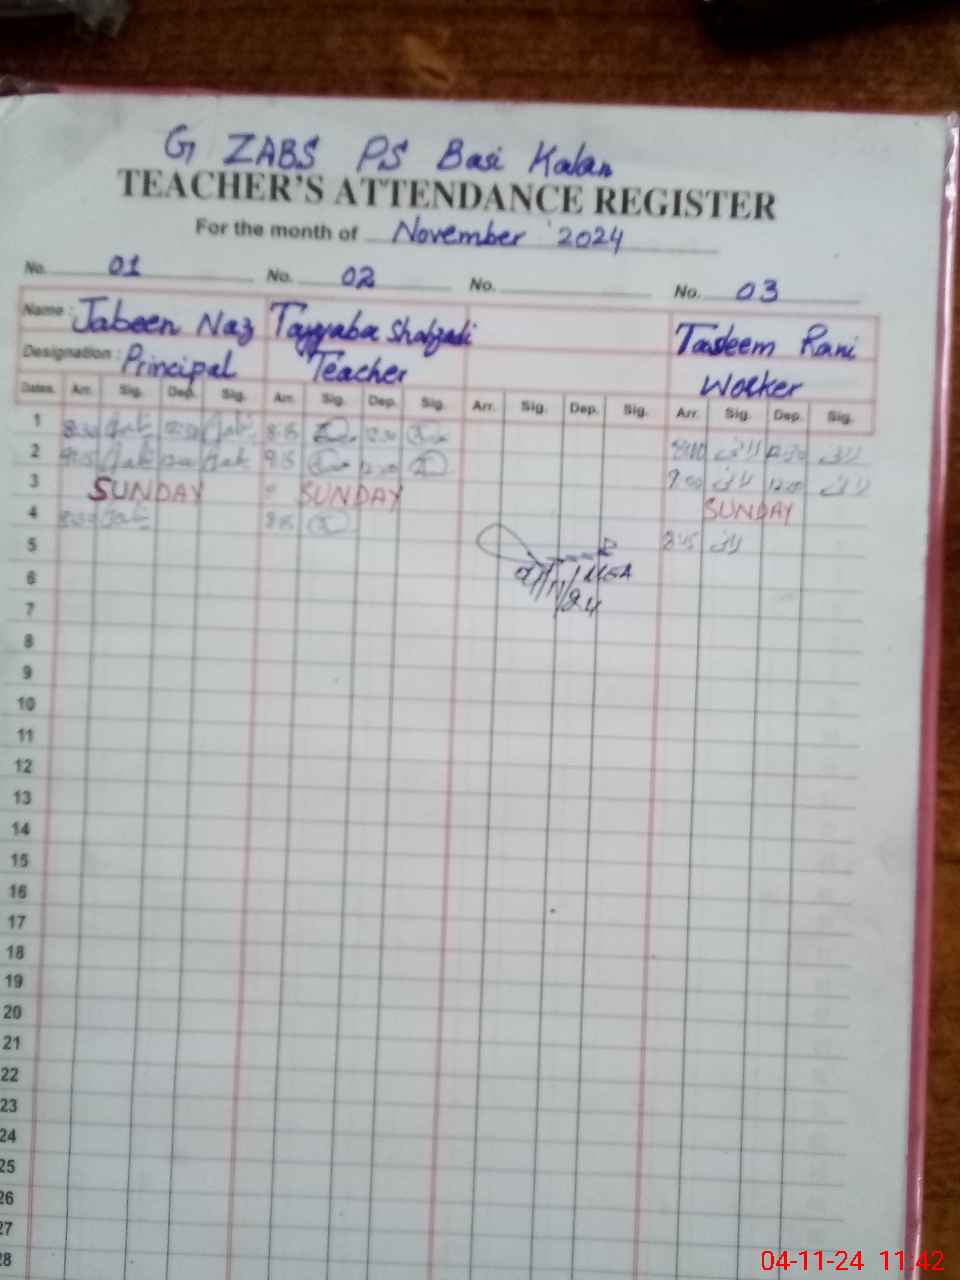 G ZABS PS Basi Kalan
TEACHER'S ATTENDANCE REGISTER
For the month of November 2024
No. 01 No. 02 No. No. 03
Name : Jabeen Naz Tayyaba Shahzadi Tasleem Rani
Designation : Principal Teacher Worker
Dates. Arr. Sig. Dep. Sig. Arr. Sig. Dep. Sig. Arr. Sig. Dep. Sig. Arr. Sig. Dep. Sig.
1 8:30 12:30 8:15 12:30 8:40 12:30
2 9:15 12:00 9:15 12:00 9:00 12:00
3 SUNDAY SUNDAY SUNDAY
4 8:30 8:15 8:45
5
6
7
8
9
10
11
12
13
14
15
16
17
18
19
20
21
22
23
24
25
26
27
28
04-11-24 11:42